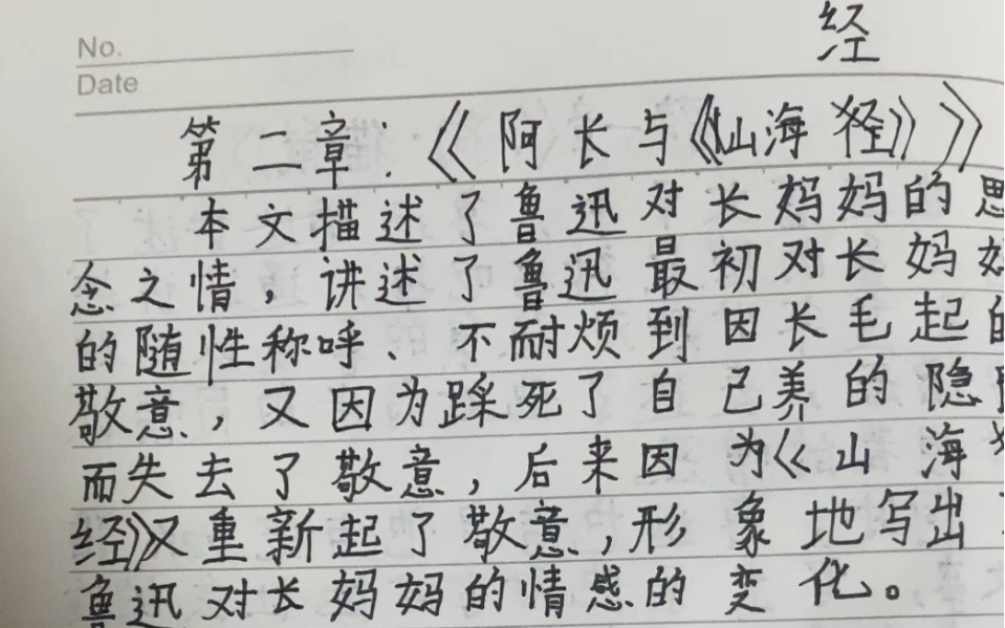 经
No.
Date
第二章：《阿长与《山海经》》
本文描述了鲁迅对长妈妈的思
念之情，讲述了鲁迅最初对长妈妈
的随性称呼、不耐烦到因长毛起的
敬意，又因为踩死了自己养的隐
而失去了敬意，后来因为《山海
经》又重新起了敬意，形象地写出
鲁迅对长妈妈的情感的变化。